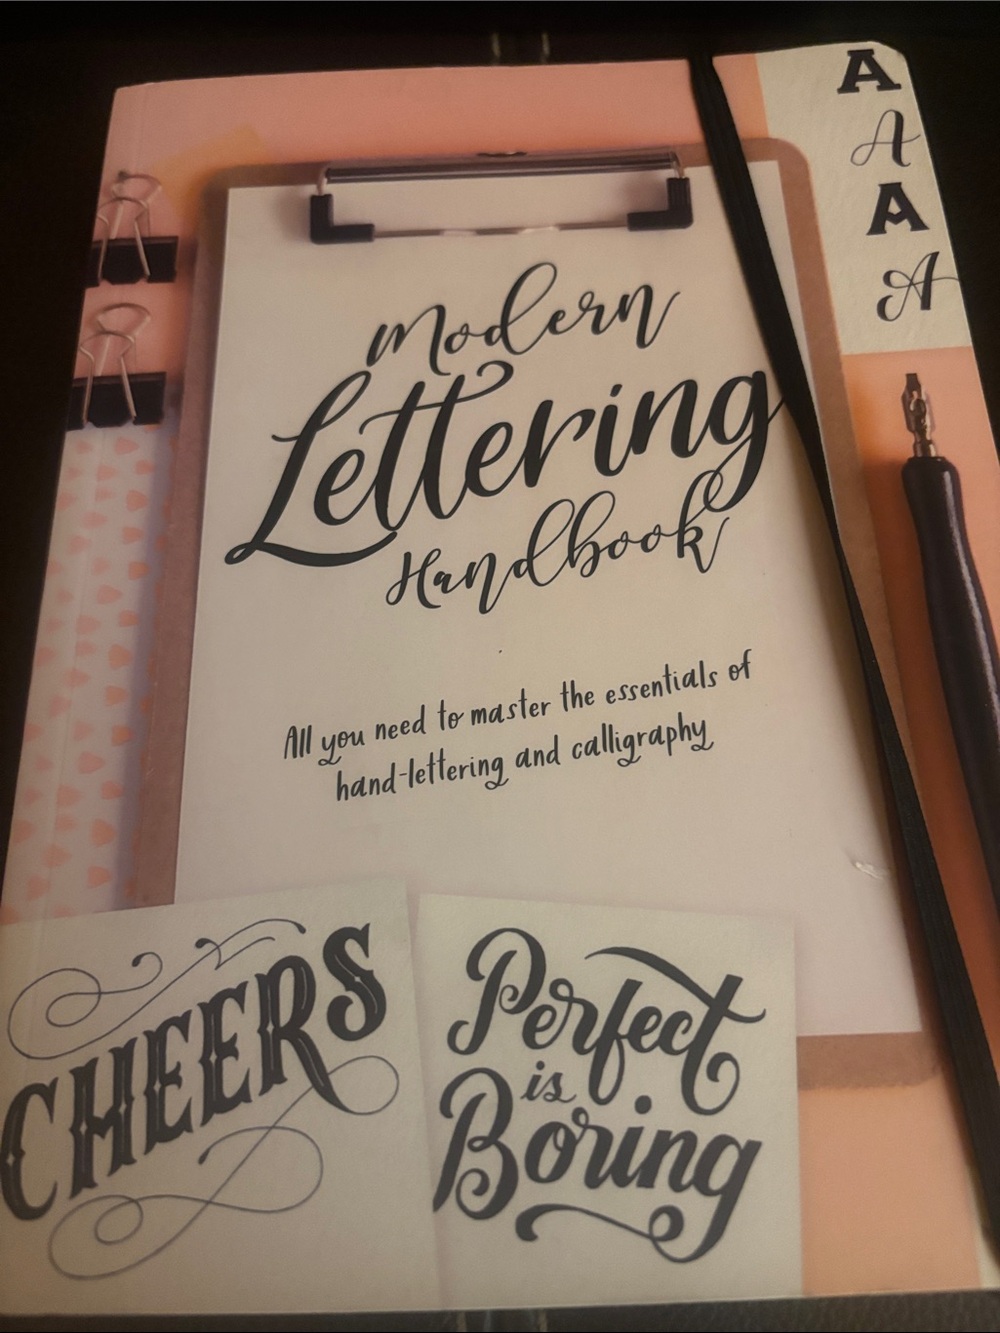 A
A
A
A
Modern
Lettering
Handbook
All you need to master the essentials of
hand-lettering and calligraphy
CHEERS
Perfect
is
Boring